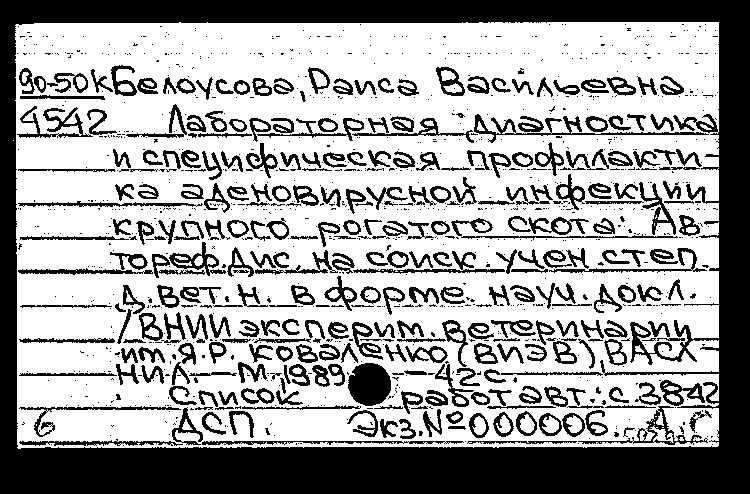 90-50к Белоусова, Раиса Васильевна
4542 Лабораторная диагностика
и специфическая профилакти-
ка аденовирусной инфекции
крупного рогатого скота: Ав-
тореф. дис. на соиск. учен. степ.
д. вет. н. в форме науч. докл.
/ ВНИИ эксперим. ветеринарии
им. Я.Р. Коваленко (ВИЭВ), ВАСХ-
НИЛ. — М., 1989 — 42 с.
Список работ авт.: с. 38-42
6 ДСП. Экз. № 000006.